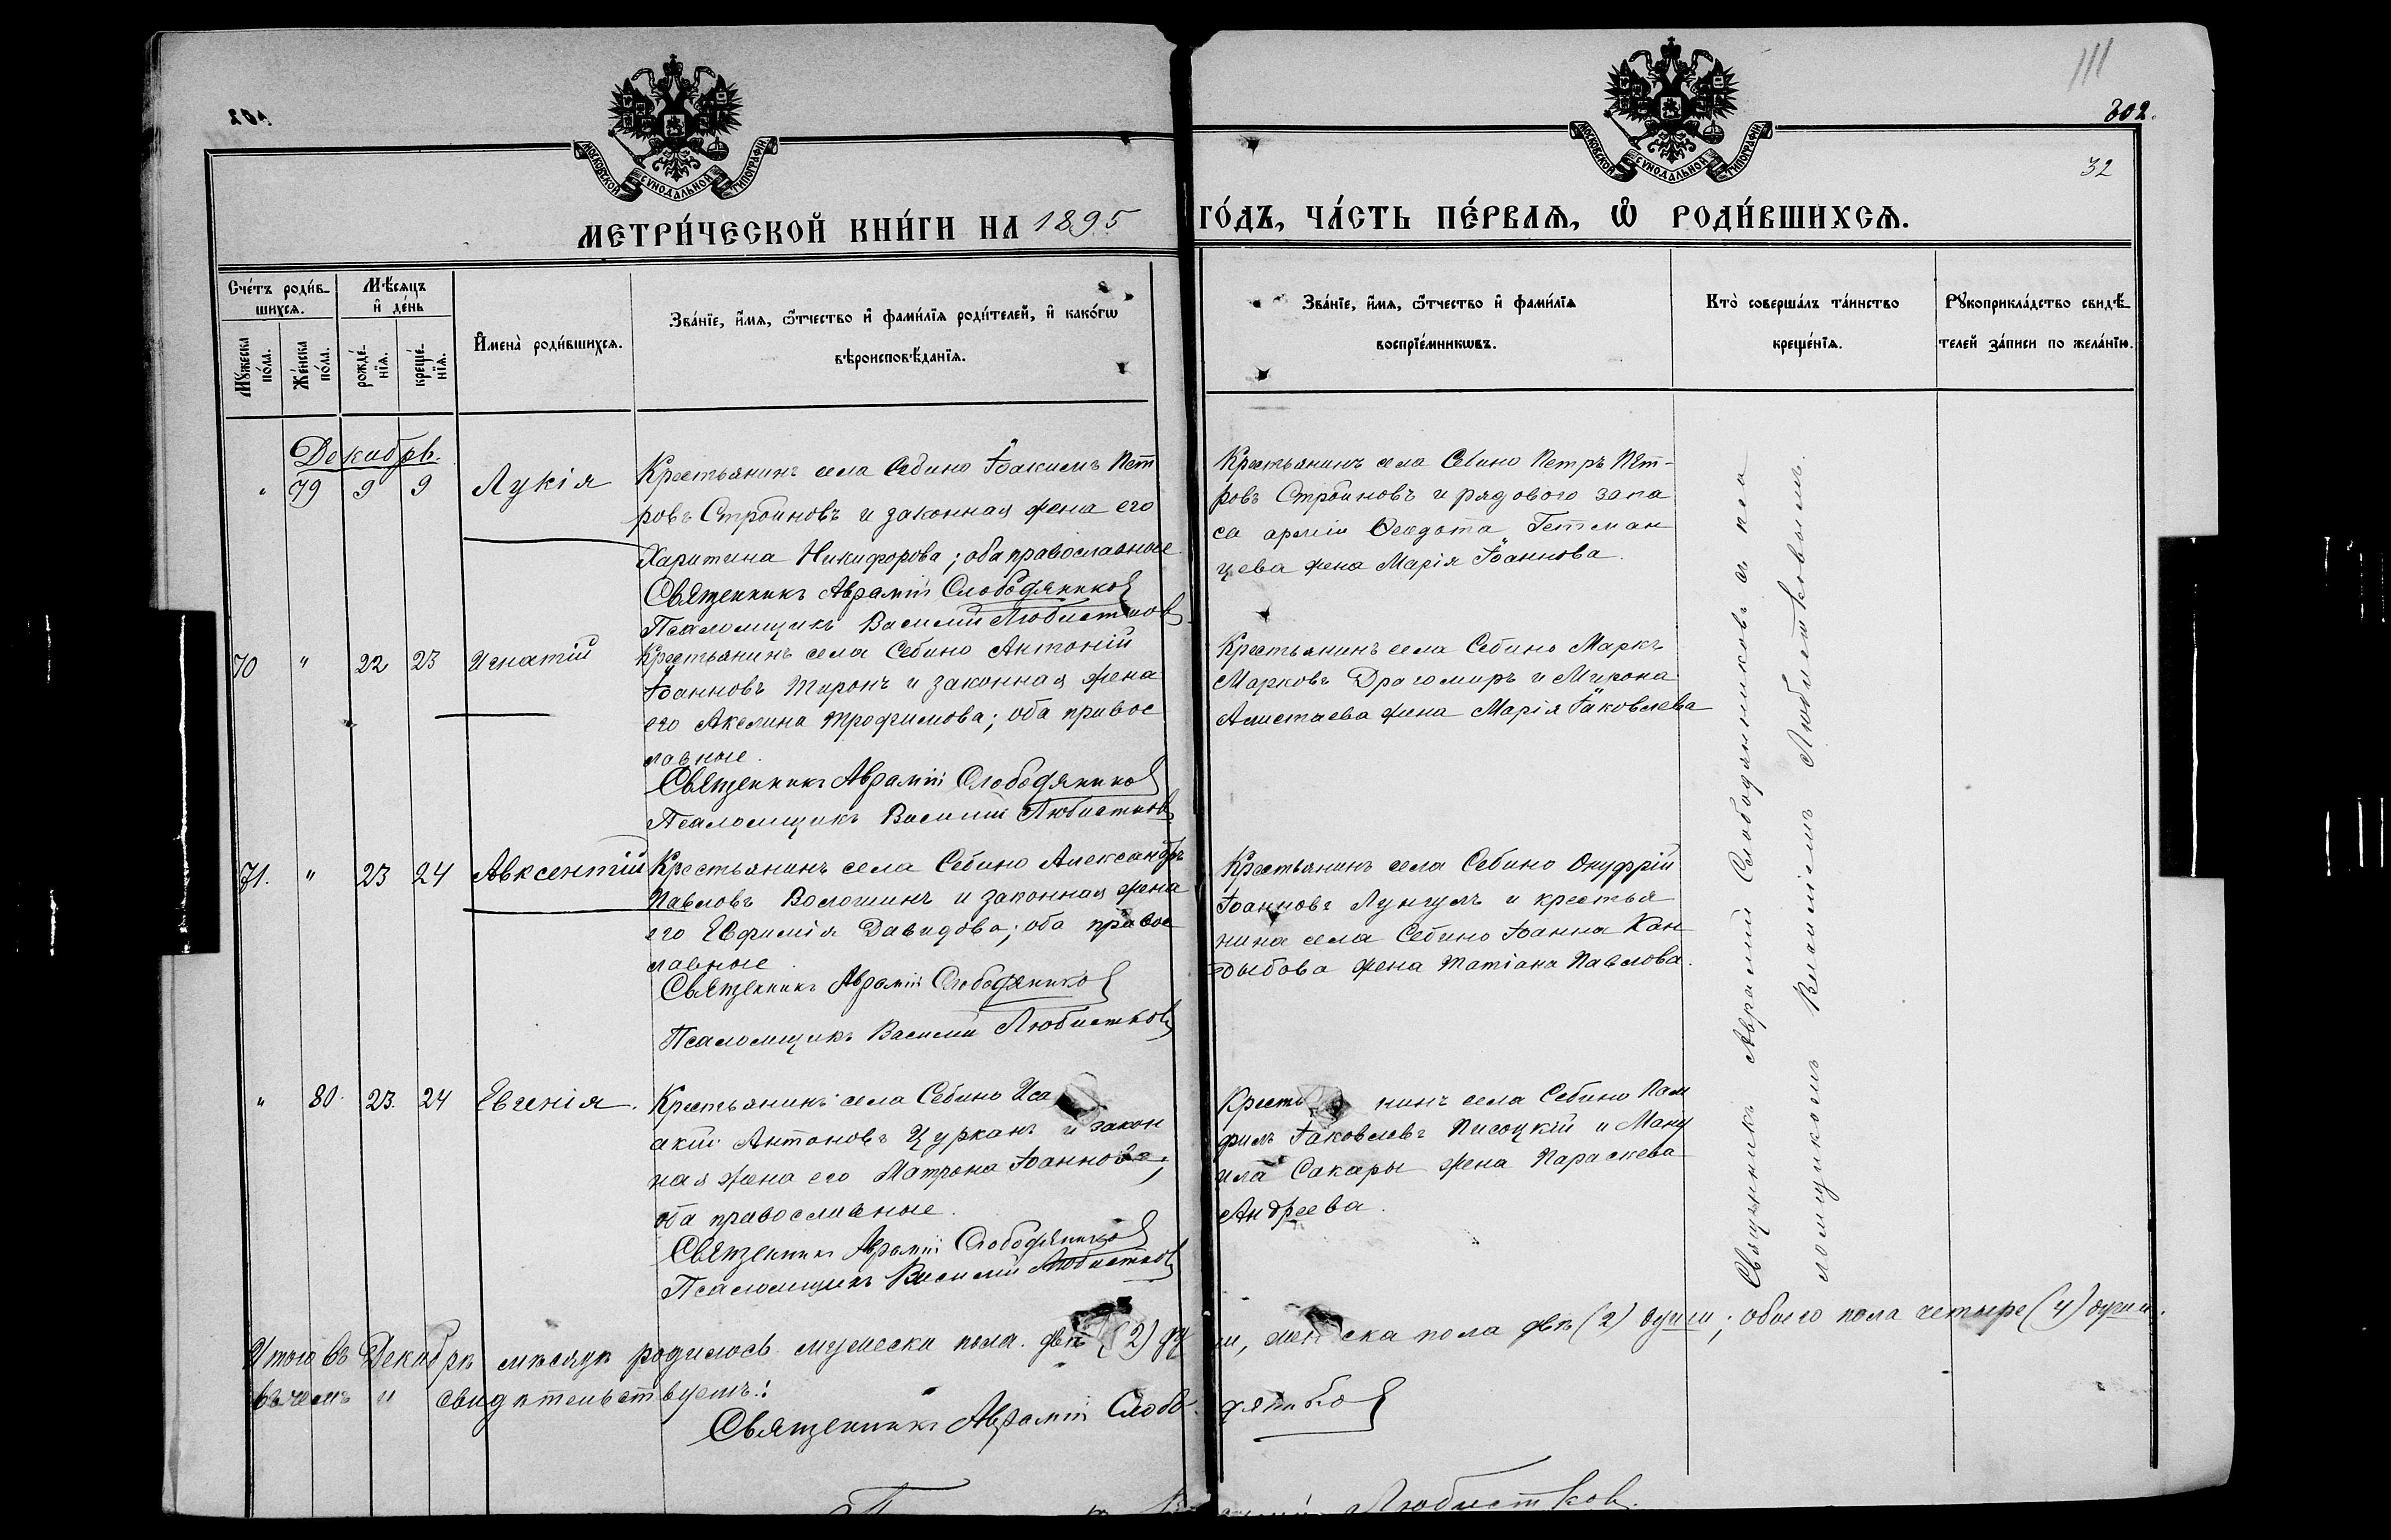 111
302.
32
МОСКОВСКОЙ СУНОДАЛЬНОЙ ТИПОГРАФІИ
МОСКОВСКОЙ СУНОДАЛЬНОЙ ТИПОГРАФІИ
МЕТРИ́ЧЕСКОЙ КНИ́ГИ НА 1895 ГО́ДЪ, ЧА́СТЬ ПЕ́РВАѦ, Ѡ҆ РОДИ́ВШИХСѦ.
Сче́тъ роди́в-
шихсѧ.
Мꙋ́жеска по́ла.
Же́нска по́ла.
Мѣ́сѧцъ
и҆ де́нь
рожде́-нїѧ.
креще́-нїѧ.
И҆мена̀ роди́вшихсѧ.
Зва́нїе, и҆́мѧ, ѻ҆́тчество и҆ фами́лїѧ роди́телей, и҆ како́гѡ
вѣроисповѣ́данїѧ.
Зва́нїе, и҆́мѧ, ѻ҆́тчество и҆ фами́лїѧ
воспрїе́мникѡвъ.
Кто̀ соверша́лъ та́инство
креще́нїѧ.
Рꙋкоприкла́дство свидѣ́-
телей за́писи по жела́нїю.
Декабрь.
" 79 9 9 Лукія
Крестьянинъ села Себино Іоакимъ Пет
ровъ Строиновъ и законная жена его
Харитина Никифорова; оба православные
Священникъ Аврамій Слободяников
Псаломщикъ Василій Любистков
Крестьянинъ села Себино Петръ Пет-
ровъ Строиновъ и рядового запа
са арміи Феодота Гетман
цева жена Марія Іоаннова.
70 " 22 23 Игнатій
Крестьянинъ села Себино Антоній
Іоанновъ Тиронъ и законная жена
его Акелина Трофимова; оба правос
лавные.
Священникъ Аврамій Слободяников
Псаломщикъ Василій Любистков
Крестьянинъ села Себино Маркъ
Марковъ Драгомиръ и Мирона
жена Марія Іаковлева
71. " 23 24 Авксентій
Крестьянинъ села Себино Александръ
Павловъ Волошинъ и законная жена
его Евфимія Давидова; оба правос
лавные.
Священникъ Аврамій Слободяников
Псаломщикъ Василій Любистков
Крестьянинъ села Себино Онуфрій
Іоанновъ Лунгулъ и крестья
нина села Себино Іоанна Кан
дыбова жена Татіана Павлова.
" 80. 23. 24 Евгенія.
Крестьянинъ села Себино Иса
акій Антоновъ Цурканъ и закон
ная жена его Матрона Іоаннова;
оба православные.
Священникъ Аврамій Слободяников
Псаломщикъ Василій Любистков
Крестьянинъ села Себино Пам
филъ Іаковлевъ Писоцкій и Ману
ила Сакары жена Параскева
Андреева.
Священникъ Аврамій Слободянниковъ съ пса
ломщикомъ Василіемъ Любистковымъ.
Итого въ Декабрѣ мѣсяцѣ родилось мужеска пола. двѣ (2) души, женска пола двѣ (2) души; обоего пола четыре (4) души.
въ чемъ и свидѣтельствуемъ:
Священникъ Аврамій Слободяников
Любистков.